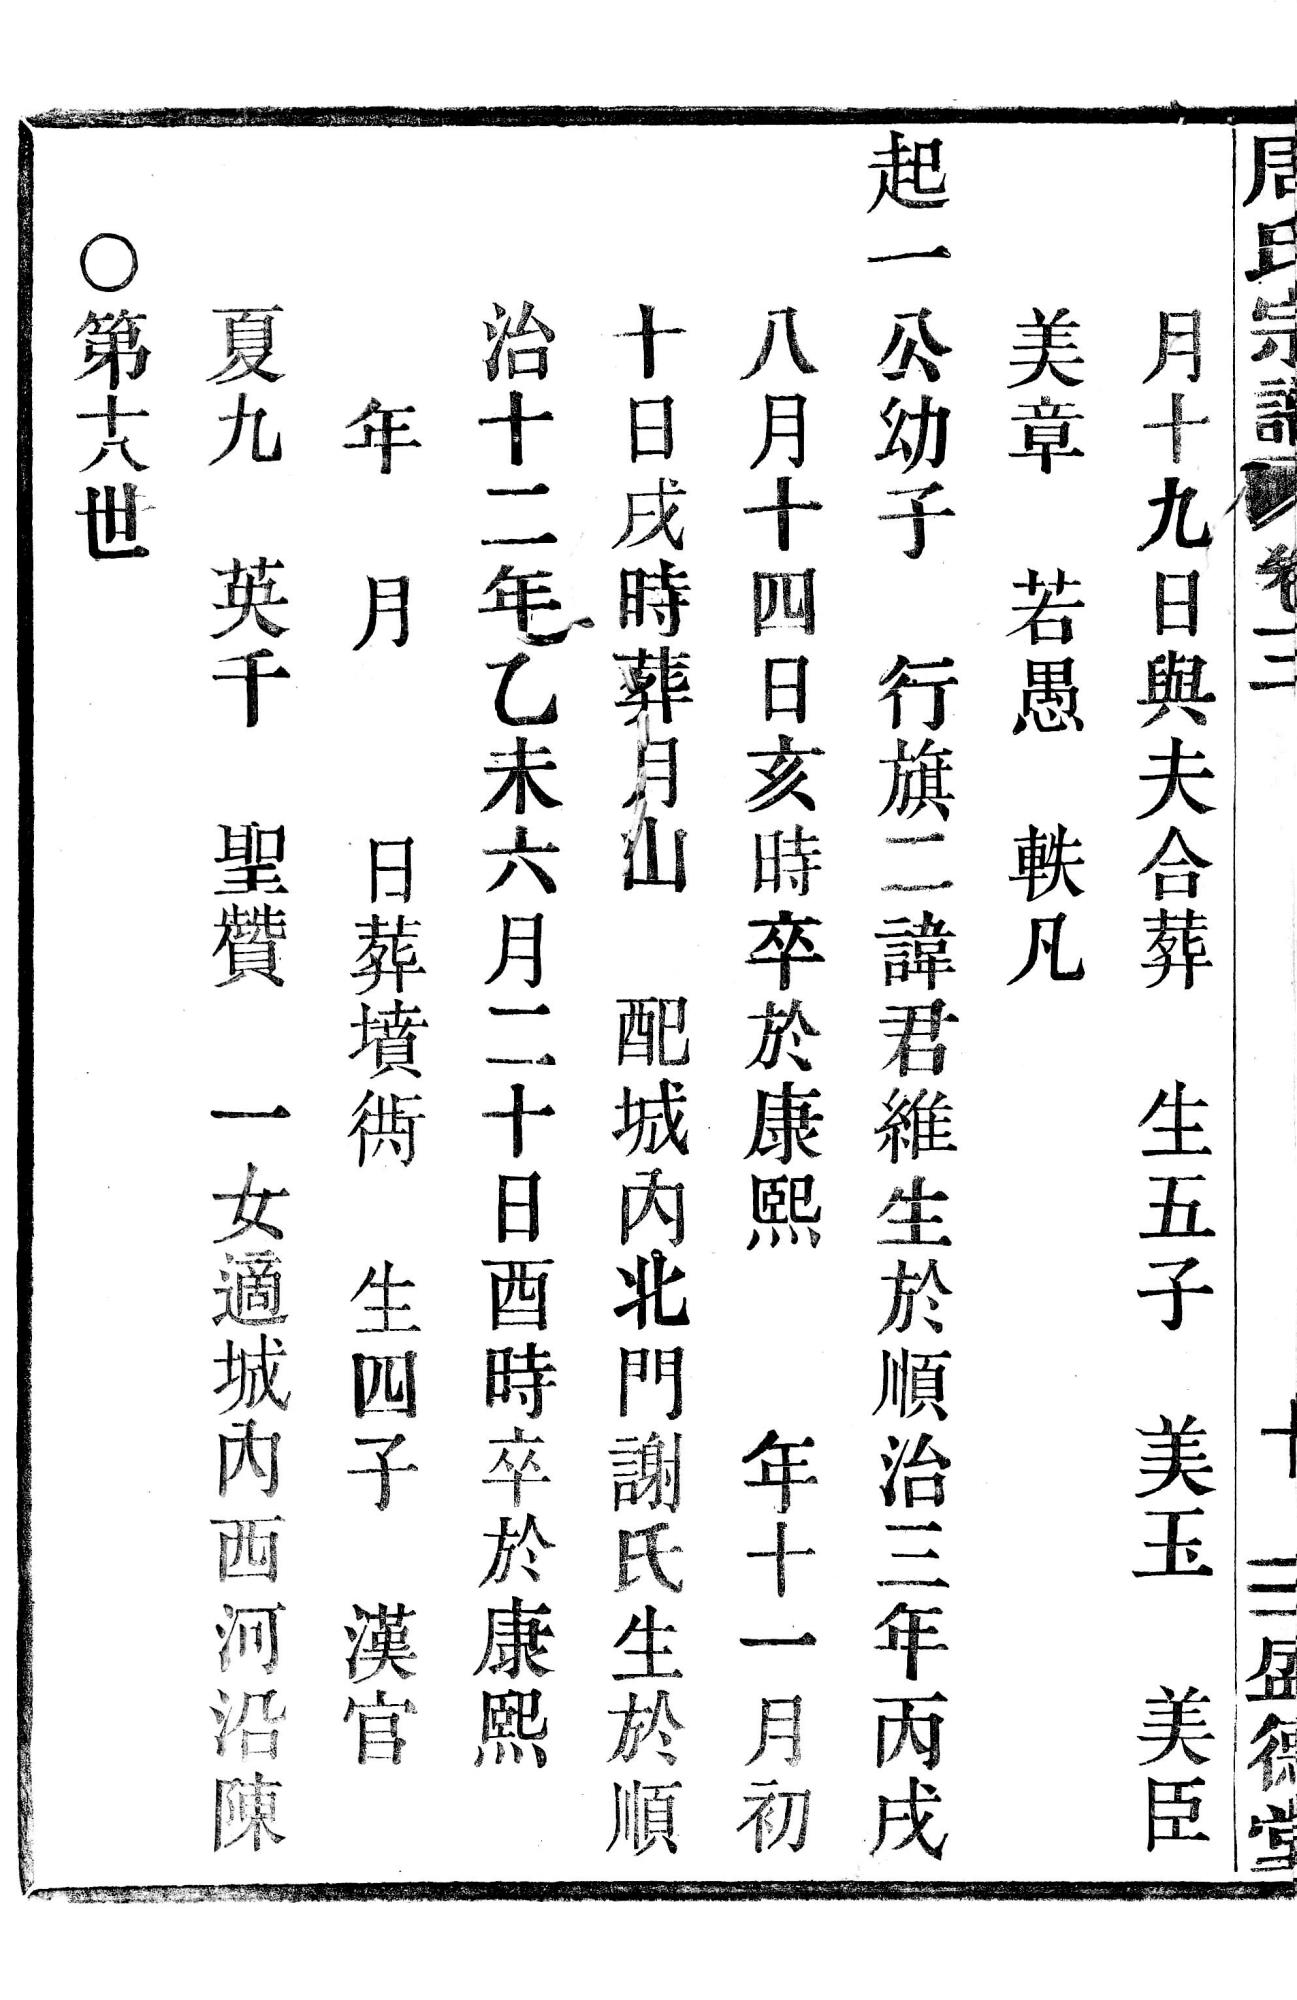 周氏宗譜 卷三 十三 盛德堂
月十九日與夫合葬 生五子 美玉 美臣
美章 若愚 軼凡
起一公幼子 行旗二諱君維生於順治三年丙戌
八月十四日亥時卒於康熙 年十一月初
十日戌時葬月山 配城內北門謝氏生於順
治十二年乙未六月二十日酉時卒於康熙
年 月 日葬墳衖 生四子 漢官
夏九 英千 聖贊 一女適城內西河沿陳
○第十八世